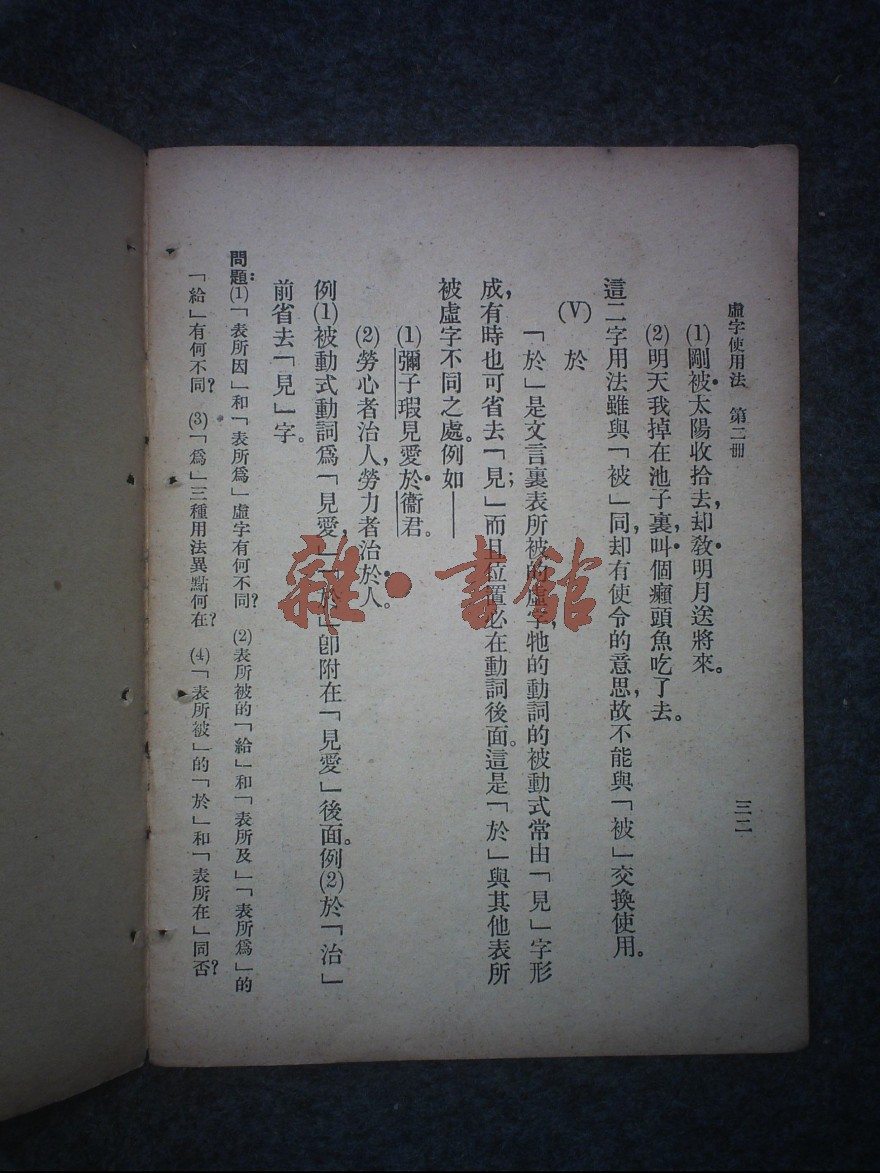 虛字使用法　第二冊
三二
(1)剛被太陽收拾去，却敎明月送將來。
(2)明天我掉在池子裏，叫個癩頭魚吃了去。
這二字用法雖與「被」同，却有使令的意思，故不能與「被」交換使用。
(V)　於
「於」是文言裏表所被的虛字，牠的動詞的被動式常由「見」字形
成，有時也可省去「見」；而且位置必在動詞後面。這是「於」與其他表所
被虛字不同之處。例如——
(1)彌子瑕見愛於衞君。
(2)勞心者治人，勞力者治於人。
例(1)被動式動詞爲「見愛，」「於」卽附在「見愛」後面。例(2)於「治」
前省去「見」字。
問題：(1)「表所因」和「表所爲」虛字有何不同？　(2)表所被的「給」和「表所及」「表所爲」的
「給」有何不同？　(3)「爲」三種用法異點何在？　(4)「表所被」的「於」和「表所在」同否？
雜·書館